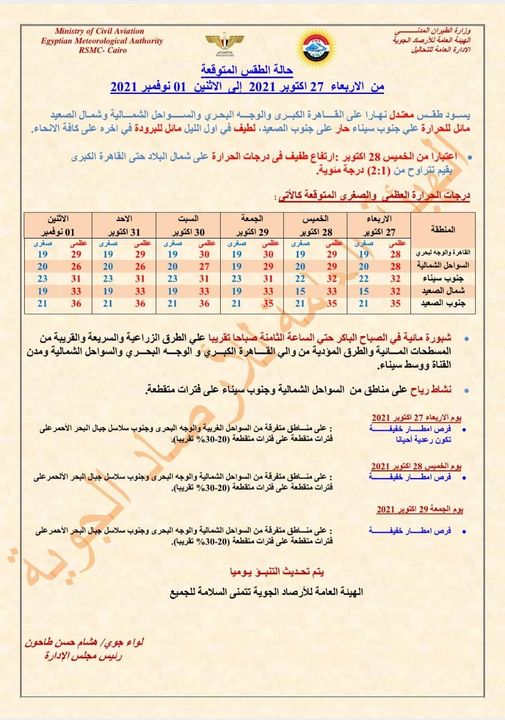 Ministry of Civil Aviation
Egyptian Meteorological Authority
RSMC- Cairo
وزارة الطيران المدنـــي
الهيئة العامة للأرصاد الجوية
الادارة العامة للتحاليل
حالة الطقس المتوقعة
من الاربعاء 27 اكتوبر 2021 إلى الاثنين 01 نوفمبر 2021
يسـود طقـس معتـدل نهـارا على القـاهرة الكبرى والوجـه البحري والسـواحل الشمـالية وشمال الصعيد
مائل للحرارة علي جنوب سيناء حار على جنوب الصعيد، لطيف في اول الليل مائل للبرودة في اخره على كافة الانحاء.
• اعتبارا من الخميس 28 اكتوبر :ارتفاع طفيف فى درجات الحرارة على شمال البلاد حتى القاهرة الكبرى
بقيم تتراوح من (2:1) درجة مئوية.
درجات الحرارة العظمى والصغرى المتوقعة كالآتى :
المنطقة الاربعاء 27 اكتوبر الخميس 28 اكتوبر الجمعة 29 اكتوبر السبت 30 اكتوبر الاحد 31 اكتوبر الاثنين 01 نوفمبر
عظمى صغرى عظمى صغرى عظمى صغرى عظمى صغرى عظمى صغرى عظمى صغرى
القاهرة والوجه لبحري 28 19 29 19 30 19 30 19 29 19 29 19
السواحل الشمالية 28 20 29 20 29 20 27 20 26 20 26 20
جنوب سيناء 32 22 32 22 31 23 31 23 31 23 31 23
شمال الصعيد 32 15 33 15 33 19 33 19 33 19 33 19
جنوب الصعيد 35 21 35 21 35 21 36 21 36 21 36 21
• شبورة مائية في الصباح الباكر حتي الساعة الثامنة صباحا تقريبا علي الطرق الزراعية والسريعة والقريبة من
المسطحات المـائية والطرق المؤدية من والي القـاهرة الكبـري و الوجه البحـري والسواحل الشمالية ومدن
القناة ووسط سيناء.
• نشاط رياح على مناطق من السواحل الشمالية وجنوب سيناء على فترات متقطعة.
يوم الاربعاء 27 اكتوبر 2021
• فرص امطـار خفيفـــة : على منـاطق متفرقة من السواحل الغربية والوجه البحرى وجنوب سلاسل جبال البحر الأحمرعلى
تكون رعدية أحيانا متقطعة على فترات متقطعة (20-30% تقريبا).
يوم الخميس 28 اكتوبر 2021
• فرص امطـار خفيفـــة : على مناطق متفرقة من السواحل الشمالية والوجه البحرى وجنوب سلاسل جبال البحر الألحمرعلى
فترات متقطعة على فترات متقطعة (20-30% تقريبا).
يوم الجمعة 29 اكتوبر 2021
• فرص امطـار خفيفـــة : على مناطق متفرقة من السواحل الشمالية والوجه البحرى وجنوب سلاسل جبال البحر الأحمرعلى
فترات متقطعة على فترات متقطعة (20-30% تقريبا).
يتم تحـديث التنبـؤ يـوميا
الهيئة العامة للأرصاد الجوية تتمنى السلامة للجميع
لواء جوي/ هشام حسن طاحون
رئيس مجلس الإدارة
الهيئة العامة للأرصاد الجوية